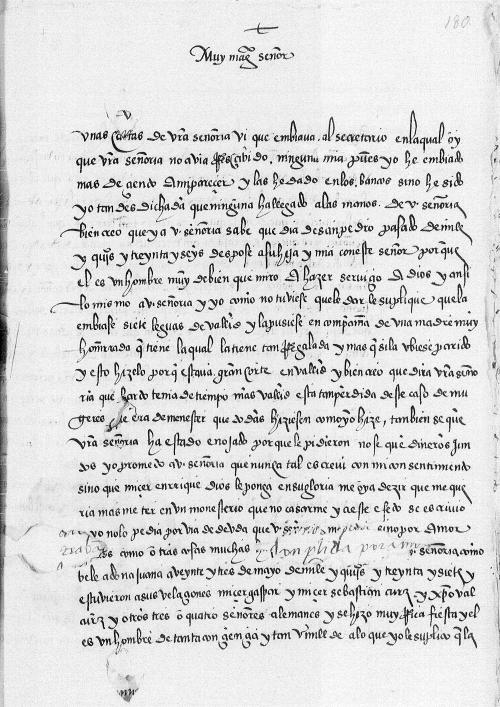 180
Muy mag^co señor
unas cartas de v^ra señoria vi que embiava al secretario en la qual oy
que v^ra señoria no avia rrescibido ninguna mia pues yo he embiado
mas de a mi parecer y las he dado en los bancos sino he sido
yo tan desdichada que ninguna ha llegado a las manos de v. señoria
bien creo que ya v. señoria sabe que dia de san pedro pasado de mile
y qui^os y treynta y seys despose a su hija y mia con este señor porque
el es un hombre muy de bien que miro a hazer servicio a dios y ansi
lo mismo a v. señoria y yo como no tuviese que le dar le suplique que la
embiase siete leguas de val^id y la pusiese en compañia de una madre muy
honrrada q tiene la qual la tiene tan rregalada y mas q si la ubiese parido
y esto hizelo porq estava gran corte en val^id y bien creo que dira v^ra seño
ria que harto tenia de tiempo mas val^id esta tan perdida deste caso de mu
geres que era de menester que todas hiziesen como yo hize, tambien se que
v^ra señoria ha estado enojado porque le pidieron no se que dineros jun
dos yo prometo a v. señoria que nunca tal escrevi con mi consentimento
sino que micer enrrique dios le ponga en su gloria me oya dezir que me que
ria mas meter en un monesterio que no casarme y a este efeto se escrivio
yo no lo pedia por via de devda que v. sino por amor
como otras cosas muchas cunplida por v. señoria como
vele a doña juana a veynte y tres de mayo de mile y qui^os y treynta y siete y
estuvieron a sus velaçones micer gaspar y micer sebastian y xpoval
y otros tres o quatro señores alemanes y se hizo muy rrica fiesta y el
es un hombre de tanta y tan umilde a lo que yo le suplico q la